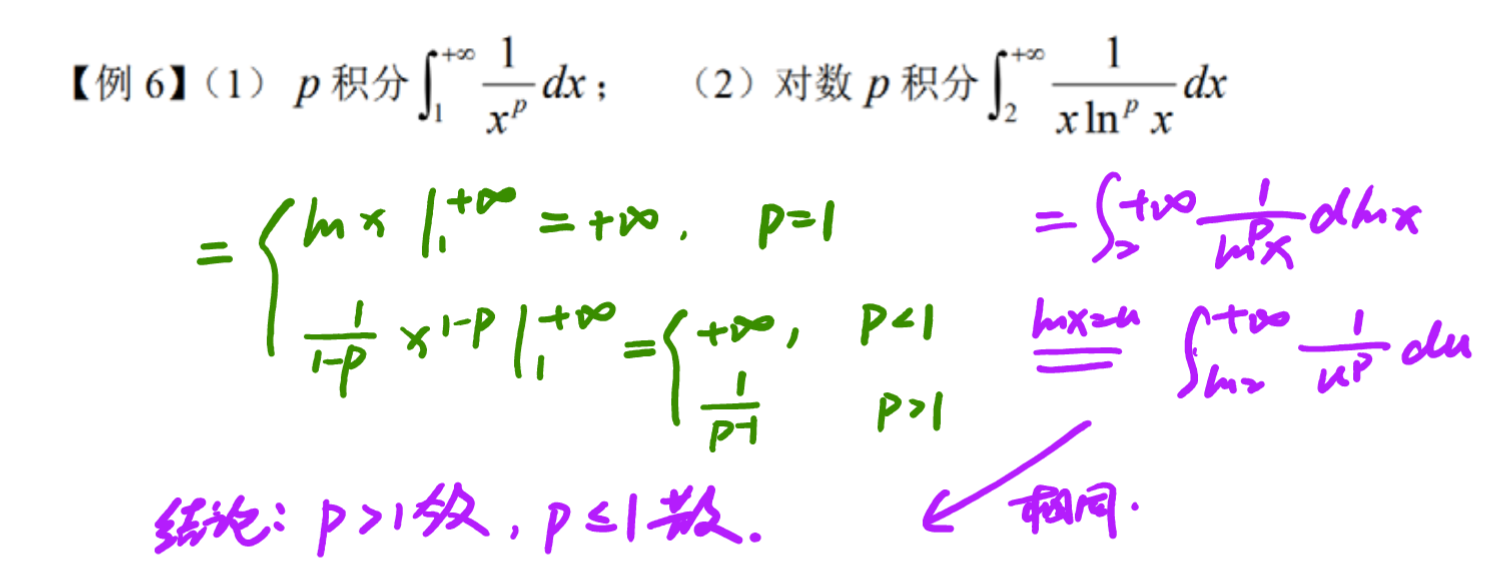 【例 6】(1) p 积分 ∫₁^{+∞} 1/x^p dx； (2) 对数 p 积分 ∫₂^{+∞} 1/(x ln^p x) dx
= { ln x |₁^{+∞} = +∞, p=1
1/(1-p) x^{1-p} |₁^{+∞} = { +∞, p<1
1/(p-1) p>1
= ∫₂^{+∞} 1/(ln^p x) d ln x
ln x = u ∫_{ln2}^{+∞} 1/u^p du
结论: p>1敛, p≤1散.
相同.